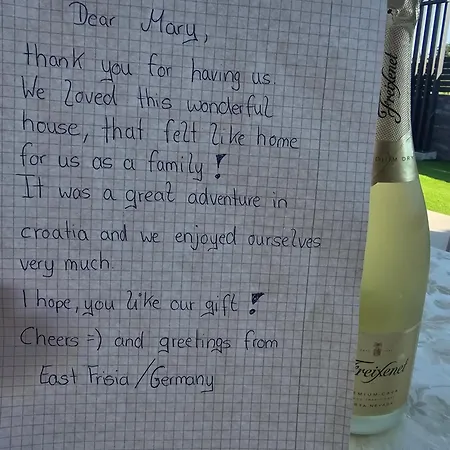 Dear Mary,
thank you for having us.
We loved this wonderful
house, that felt like home
for us as a family!
It was a great adventure in
croatia and we enjoyed ourselves
very much.
I hope, you like our gift!
Cheers =) and greetings from
East Frisia/Germany
Freixenet
Freixenet
PREMIUM CAVA